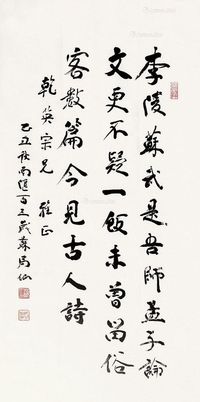 李陵蘇武是吾師孟子論
文更不疑一飯未曾留俗
客數篇今見古人詩
乾英宗兄 雅正
乙丑秋南匯百三歲蘇局仙